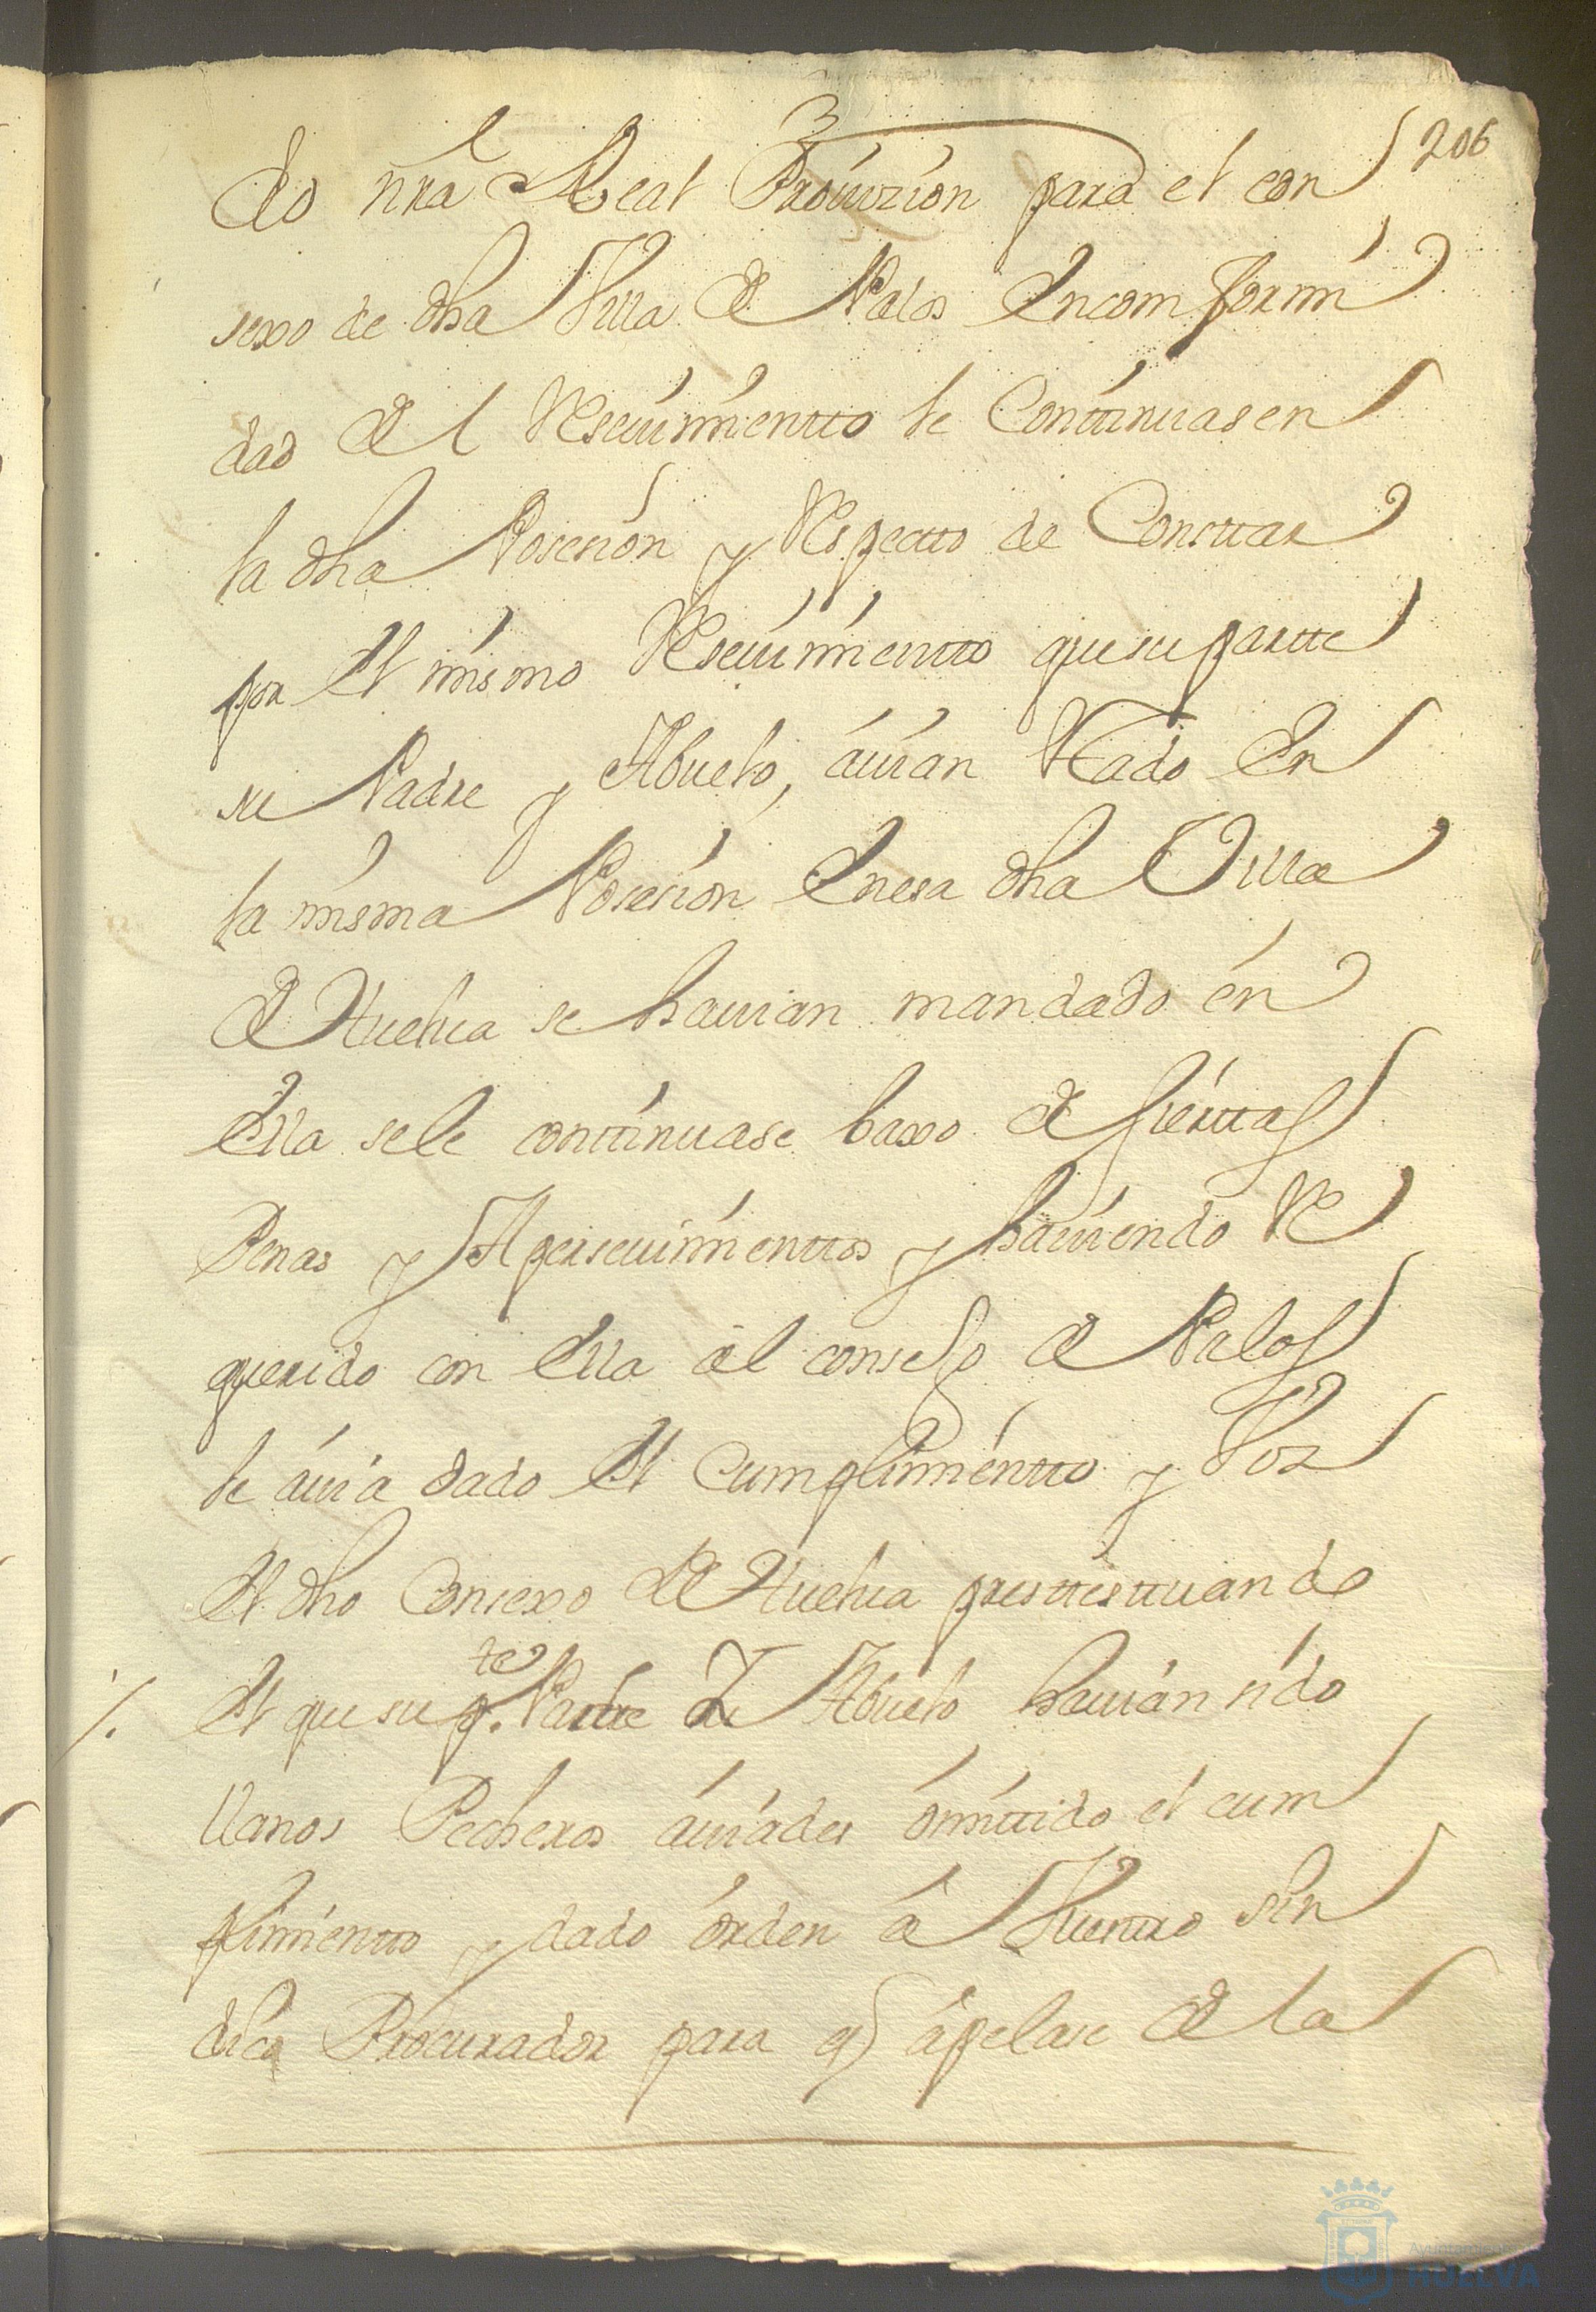 206
do nrã Real Prouizion para el con
sexo de dha Villa de Palos En comformi
dad de el Reseuimientto le Conttinuasen
la dha Posesion y Respectto de Consttar
por El mismo Reseuimientto que su partte
su Padre y Abuelo, auian Esttado En
la misma Posesion En esa dha Villa
de Huelua se hauian mandado en
Ella sele conttinuase baxo de Ziertas
Penas y Aperseuimienttos y hauiendo Re
querido con Ella al consejo de Palos
le auia dado El Cumplimientto y Vos
El dho Consexo de Huelua presttesttuando
El que su p.te Padre y Abuelo hauian sido
llanos Pecheros auiades omittido el cum
plimientto y dado orden a Vuesttro Sin
dico Procurador para q apelase de la
Ayuntamiento
HUELVA